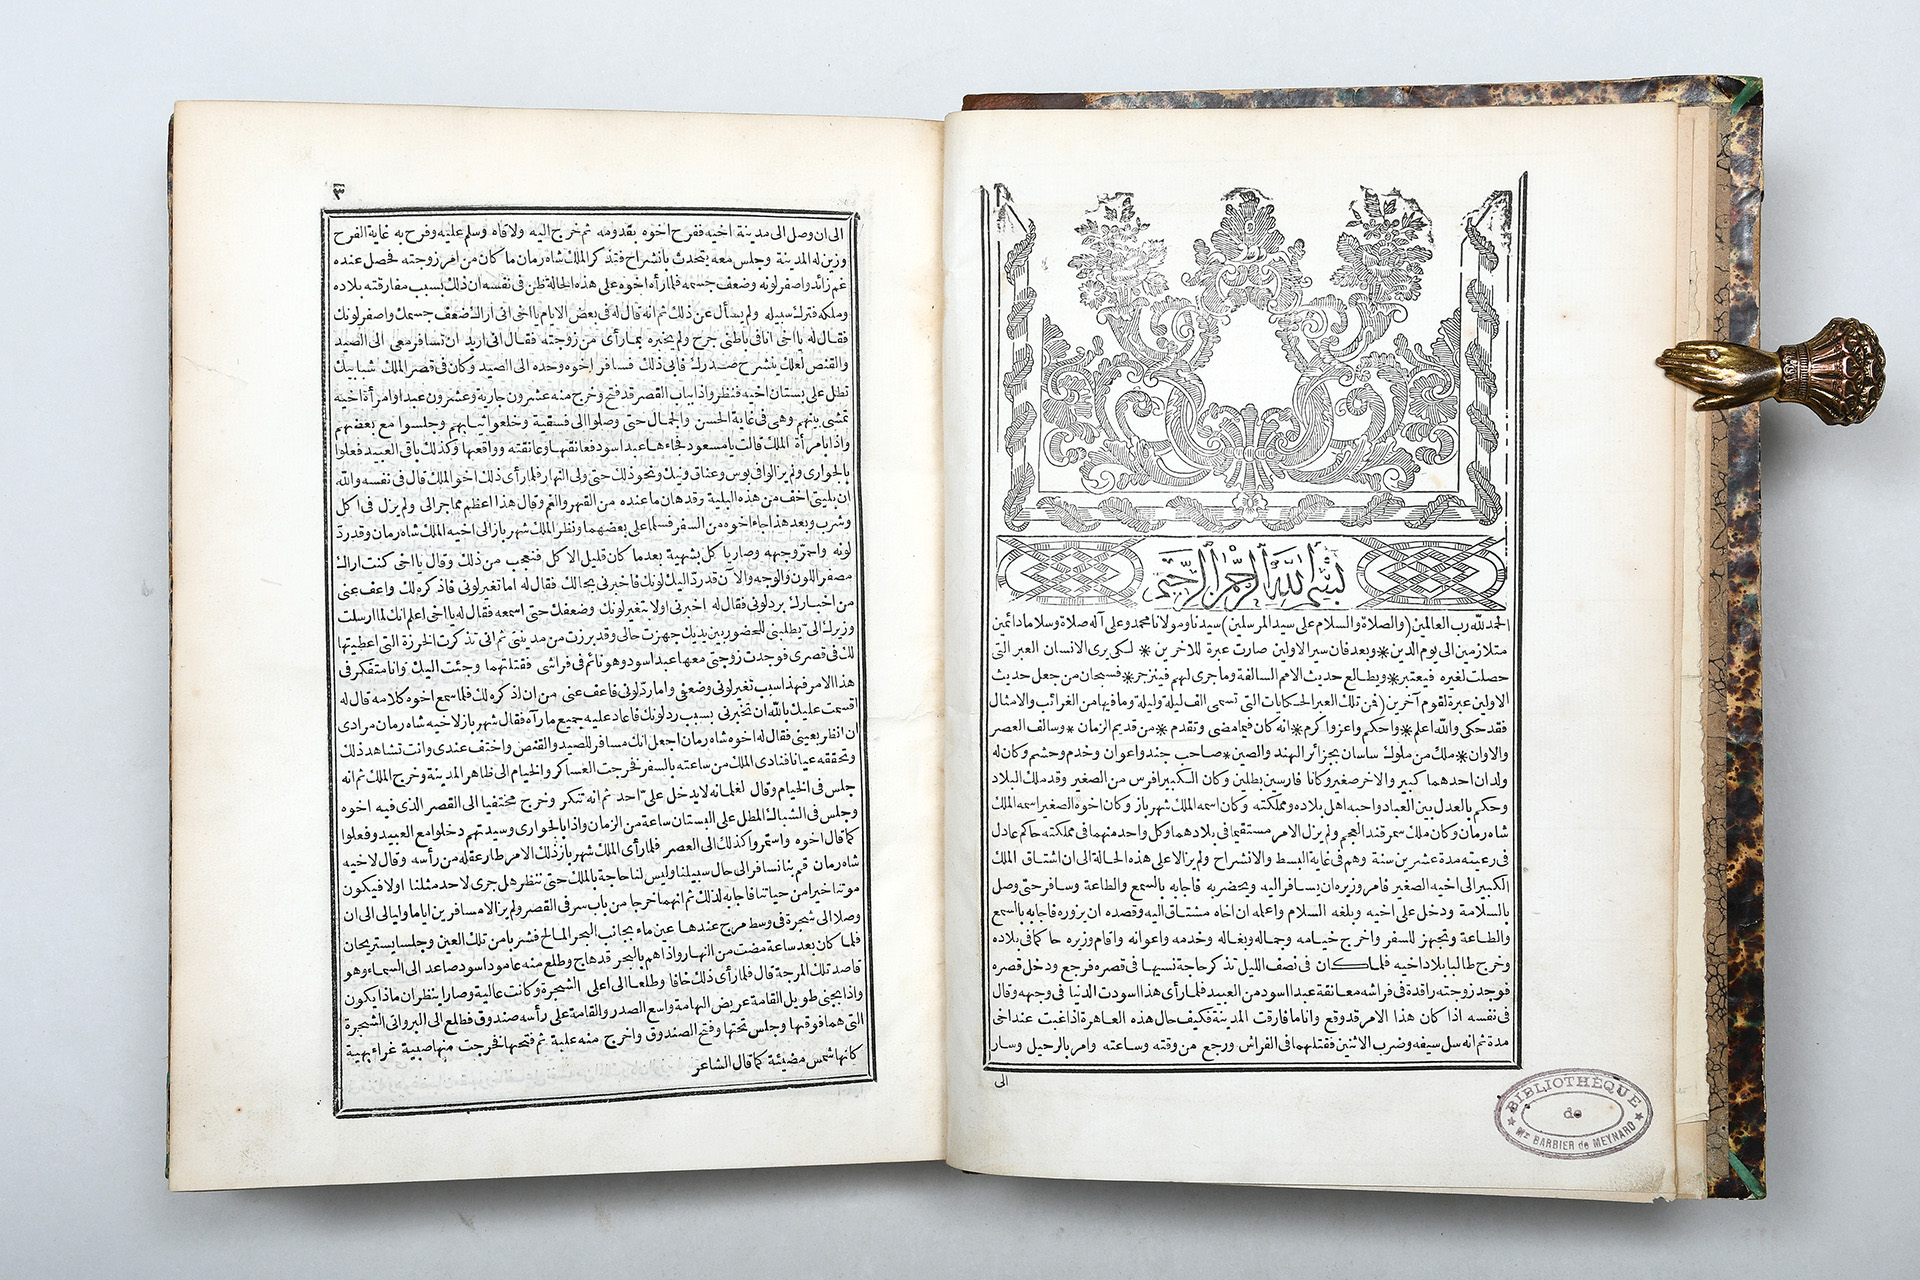 بسم الله الرحمن الرحيم
الحمد لله رب العالمين (والصلاة والسلام على سيد المرسلين) سيدنا ومولانا محمد وعلى آله صلاة وسلاما دائمين
متلازمين الى يوم الدين * وبعد فان سير الاولين صارت عبرة للاخرين * لكى يرى الانسان العبر التى
حصلت لغيره فيعتبر * ويطالع حديث الامم السالفة وما جرى لهم فينزجر * فسبحان من جعل حديث
الاولين عبرة لقوم آخرين (فن تلك العبر الحكايات التى تسمى الف ليلة وليلة وما فيها من الغرائب والامثال
فقد حكى والله اعلم * واحكم واعز واكرم * انه كان فيما مضى وتقدم * من قديم الزمان * وسالف العصر
والاوان * ملك من ملوك ساسان بجزائر الهند والصين * صاحب جند واعوان وخدم وحشم وكان له
ولدان احدهما كبير والاخر صغير وكانا فارسين بطلين وكان الكبير افرس من الصغير وقد ملك البلاد
وحكم بالعدل بين العباد واحبه اهل بلاده ومملكته وكان اسمه الملك شهر باز وكان اخوه الصغير اسمه الملك
شاه رمان وكان ملك سمرقند العجم ولم يزل الامر مستقيما فى بلادهما وكل واحد منهما فى مملكته حاكم عادل
فى رعيته مدة عشرين سنة وهم فى غاية البسط والانشراح ولم يزالا على هذه الحالة الى ان اشتاق الملك
الكبير الى اخيه الصغير فامر وزيره ان يسافر اليه ويحضر به فاجابه بالسمع والطاعة وسافر حتى وصل
بالسلامة ودخل على اخيه وبلغه السلام واعلمه ان اخاه مشتاق اليه وقصده ان يزوره فاجابه بالسمع
والطاعة وتجهز للسفر واخرج خيامه وجماله وبغاله وخدمه واعوانه واقام وزيره حاكما فى بلاده
وخرج طالبا بلاد اخيه فلما كان فى نصف الليل تذكر حاجة نسيها فى قصره فرجع ودخل قصره
فوجد زوجته راقدة فى فراشه معانقة عبدا اسود من العبيد فلما رأى هذا اسودت الدنيا فى وجهه وقال
فى نفسه اذا كان هذا الامر قد وقع وانا ما فارقت المدينة فكيف حال هذه العاهرة اذا غبت عند اخى
مدة ثم انه سل سيفه وضرب الاثنين فقتلهما فى الفراش ورجع من وقته وساعته وامر بالرحيل وسار
الى
BIBLIOTHÈQUE
de
Mr BARBIER de MEYNARD
٣
الى ان وصل الى مدينة اخيه ففرح اخوه بقدومه ثم خرج اليه ولاقاه وسلم عليه وفرح به غاية الفرح
وزين له المدينة وجلس معه يتحدث بانشراح فتذكر الملك شاه رمان ما كان من امر زوجته فحصل عنده
غم زائد واصفر لونه وضعف جسمه فلما رآه اخوه على هذه الحالة ظن فى نفسه ان ذلك بسبب مفارقته بلاده
وملكه فترك سبيله ولم يسأل عن ذلك ثم انه قال له فى بعض الايام يا اخى انى اراك ضعف جسمك واصفر لونك
فقال له يا اخى انا فى باطنى جرح ولم يخبره بما رأى من زوجته فقال انى اريد ان تسافر معى الى الصيد
والقنص لعلك ينشرح صدرك فابى ذلك فسافر اخوه وحده الى الصيد وكان فى قصر الملك شبابيك
تطل على بستان اخيه فنظر واذا بباب القصر قد فتح وخرج منه عشرون جارية وعشرون عبدا وامرأة اخيه
تمشى بينهم وهى فى غاية الحسن والجمال حتى وصلوا الى فسقية وخلعوا ثيابهم وجلسوا مع بعضهم
واذا بامرأة الملك قالت يا مسعود فجاءها عبد اسود فعانقها وعانقته وواقعها وكذلك باقى العبيد فعلوا
بالجوارى ولم يزالوا فى بوس وعناق ونيك ونحو ذلك حتى ولى النهار فلما رأى ذلك اخو الملك قال فى نفسه والله
ان بليتى اخف من هذه البلية وقد هان ما عنده من القهر والغم وقال هذا اعظم مما جرى لى ولم يزل فى اكل
وشرب وبعد هذا جاء اخوه من السفر فسلما على بعضهما ونظر الملك شهر باز الى اخيه الملك شاه رمان وقد رد
لونه واحمر وجهه وصار ياكل بشهية بعد ما كان قليل الاكل فتعجب من ذلك وقال يا اخى كنت اراك
مصفر اللون والوجه والآن قد رد اليك لونك فاخبرنى بحالك فقال له اما تغير لونى فاذكره لك واعف عنى
من اخبارك برد لونى فقال له اخبرنى اولا بتغير لونك وضعفك حتى اسمعه فقال له يا اخى اعلم انك لما ارسلت
وزيرك الىّ يطلبنى للحضور بين يديك جهزت حالى وقد برزت من مدينتى ثم انى تذكرت الخرزة التى اعطيتها
لك فى قصرى فوجدت زوجتى معها عبد اسود وهو نائم فى فراشى فقتلتهما وجئت اليك وانا متفكر فى
هذا الامر فهذا سبب تغير لونى وضعفى واما رد لونى فاعف عنى من ان اذكره لك فلما سمع اخوه كلامه قال له
اقسمت عليك بالله ان تخبرنى بسبب رد لونك فاعاد عليه جميع ما رآه فقال شهر باز لاخيه شاه رمان مرادى
ان انظر بعينى فقال له اخوه شاه رمان اجعل انك مسافر للصيد والقنص واختف عندى وانت تشاهد ذلك
وتحققه عيانا فنادى الملك من ساعته بالسفر فخرجت العساكر والخيام الى ظاهر المدينة وخرج الملك ثم انه
جلس فى الخيام وقال لغلمانه لا يدخل علىّ احد ثم انه تنكر وخرج مختفيا الى القصر الذى فيه اخوه
وجلس فى الشباك المطل على البستان ساعة من الزمان واذا بالجوارى وسيدتهم دخلوا مع العبيد وفعلوا
كما قال اخوه واستمروا كذلك الى العصر فلما رأى الملك شهر باز ذلك الامر طار عقله من رأسه وقال لاخيه
شاه رمان قم بنا نسافر الى حال سبيلنا وليس لنا حاجة بالملك حتى ننظر هل جرى لاحد مثلنا اولا فيكون
موتنا خيرا من حياتنا فاجابه لذلك ثم انهما خرجا من باب سر فى القصر ولم يزالا مسافرين اياما وليالى الى ان
وصلا الى شجرة فى وسط مرج عندها عين ماء بجانب البحر المالح فشربا من تلك العين وجلسا يستريحان
فلما كان بعد ساعة مضت من النهار واذا هم بالبحر قد هاج وطلع منه عامود اسود صاعد الى السماء وهو
قاصد تلك المرجة قال فلما رأى ذلك خافا وطلعا الى اعلى الشجرة وكانت عالية وصارا ينظران ماذا يكون
واذا بجنى طويل القامة عريض الهامة واسع الصدر والقامة على رأسه صندوق فطلع الى البر واتى الشجرة
التى هما فوقها وجلس تحتها وفتح الصندوق واخرج منه علبة ثم فتحها فخرجت منها صبية غراء بهية
كانها شمس مضيئة كما قال الشاعر